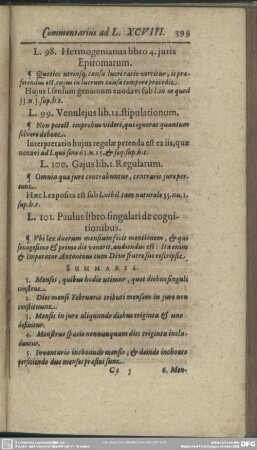 Commentarius ad L. XCVIII. 399
L. 98. Hermogenianus libro 4. juris
Epitomarum.
¶ Quoties utriusq; causa lucri ratio vertitur, is præ-
ferendus est, cujus in lucrum causa tempore præcedit.
Hujus l. sensum genuinum enodavi sub l. in eo quod
33. n. 5. sup. h. t.
L. 99. Venulejus lib. 12. stipulationum.
¶ Non potest improbus videri, qui ignorat quantum
solvere debeat.
Interpretatio hujus regulæ petenda est ex iis, quæ
notavi ad l. qui sine 63. n. 15. & seq. sup. h. t.
L. 100. Gajus lib. 1. Regularum.
¶ Omnia quæ jure contrahuntur, contrario jure pere-
unt.
Hæc l. exposita est sub l. nihil tam naturale 35. nu. 1.
sup. h. t.
L. 101. Paulus libro singulari de cogni-
tionibus.
¶ Ubi lex duorum mensium fecit mentionem, & qui
sexagesimo & primo die venerit, audiendus est: Ita enim
& Imperator Antoninus cum Divo fratre suo rescripsit.
SUMMARIA.
1. Menses, quibus hodie utimur, quot diebus singuli
constent.
2. Dies mensi Februario tributi mensem in jure non
constituunt.
3. Mensis in jure aliquando diebus triginta & uno
definitur.
4. Menstruo spatio nonnunquam dies triginta inclu-
duntur.
5. Inventario inchoando mensis, & deinde inchoato
perficiendo duo menses præfiniti sunt.
Cc 3 6. Men-